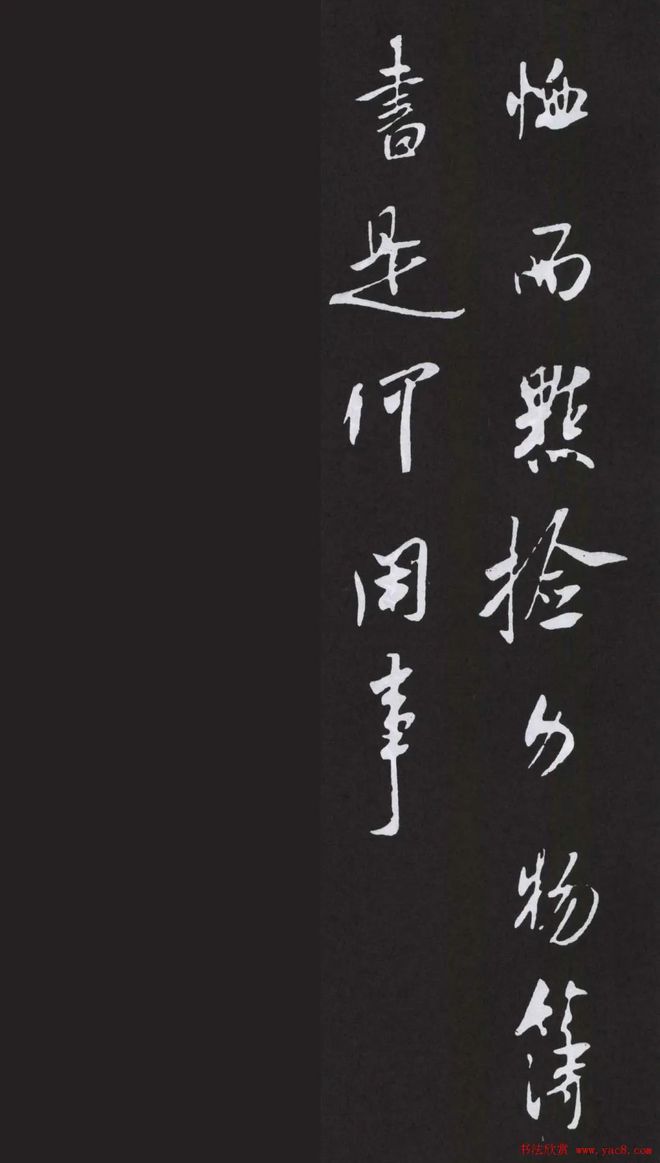 恤而點撿物簿
書是何閑事
书法欣赏 www.yac8.com